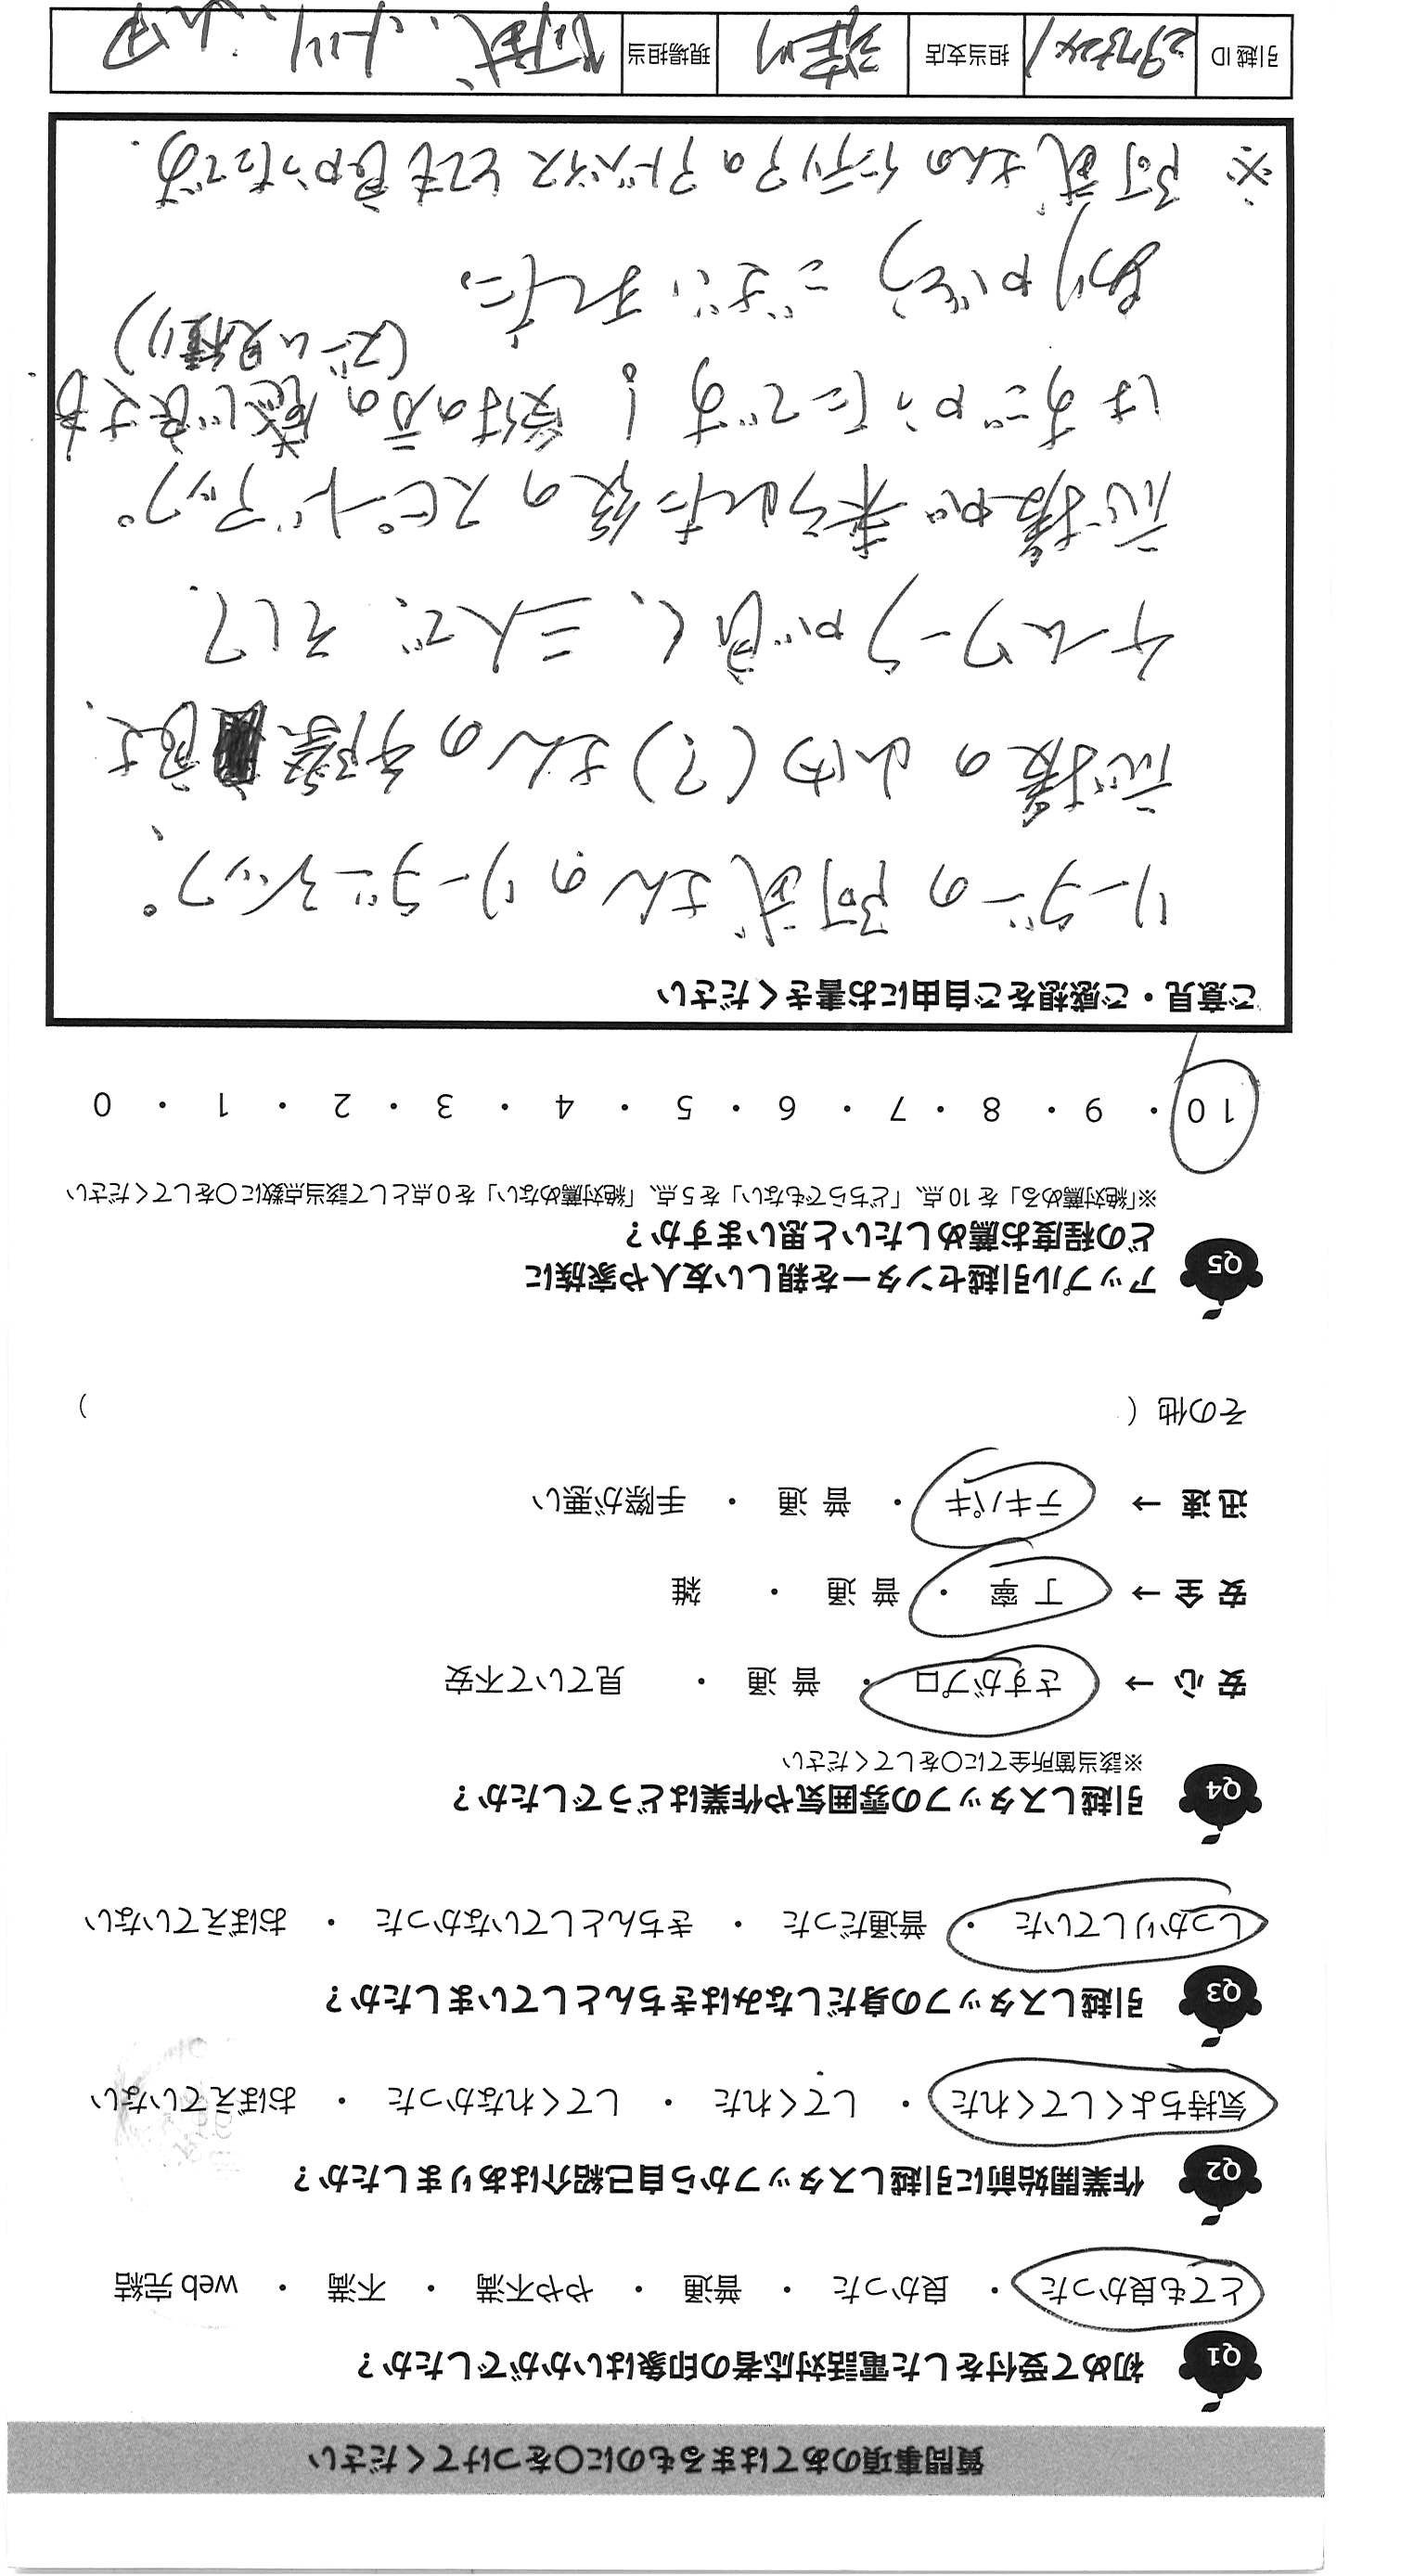 質問事項のあてはまるものに○をつけてください
Q1 初めて受付をした電話対応者の印象はいかがでしたか？
とても良かった ・ 良かった ・ 普通 ・ やや不満 ・ 不満 ・ web 完結
Q2 作業開始前に引越しスタッフから自己紹介はありましたか？
気持ちよくしてくれた ・ してくれた ・ してくれなかった ・ おぼえていない
Q3 引越しスタッフの身だしなみはきちんとしていましたか？
しっかりしていた ・ 普通だった ・ きちんとしていなかった ・ おぼえていない
Q4 引越しスタッフの雰囲気や作業はどうでしたか？
※該当箇所全てに○をしてください
安 心 → さすがプロ ・ 普 通 ・ 見ていて不安
安 全 → 丁 寧 ・ 普 通 ・ 雑
迅 速 → テキパキ ・ 普 通 ・ 手際が悪い
その他（　　　）
Q5 アップル引越センターを親しい友人や家族に
どの程度お薦めしたいと思いますか？
※「絶対薦める」を 10 点、「どちらでもない」を 5 点、「絶対薦めない」を 0 点として該当点数に○をしてください
10 ・ 9 ・ 8 ・ 7 ・ 6 ・ 5 ・ 4 ・ 3 ・ 2 ・ 1 ・ 0
ご意見・ご感想をご自由にお書きください
リーダーの阿武さんのリーダーシップ、
応援の山内(?)さんの手際良さ、
チームワークが良く、三人で、そして
応援が来られた後のスピードアップ
はすごかったです！受付の方の感じ良さも。
(ズーム見積り)
ありがとうございました。
※阿武さんのインテリアのアドバイスとても良かったです。
引越 ID 担当支店 現場担当 阿武、